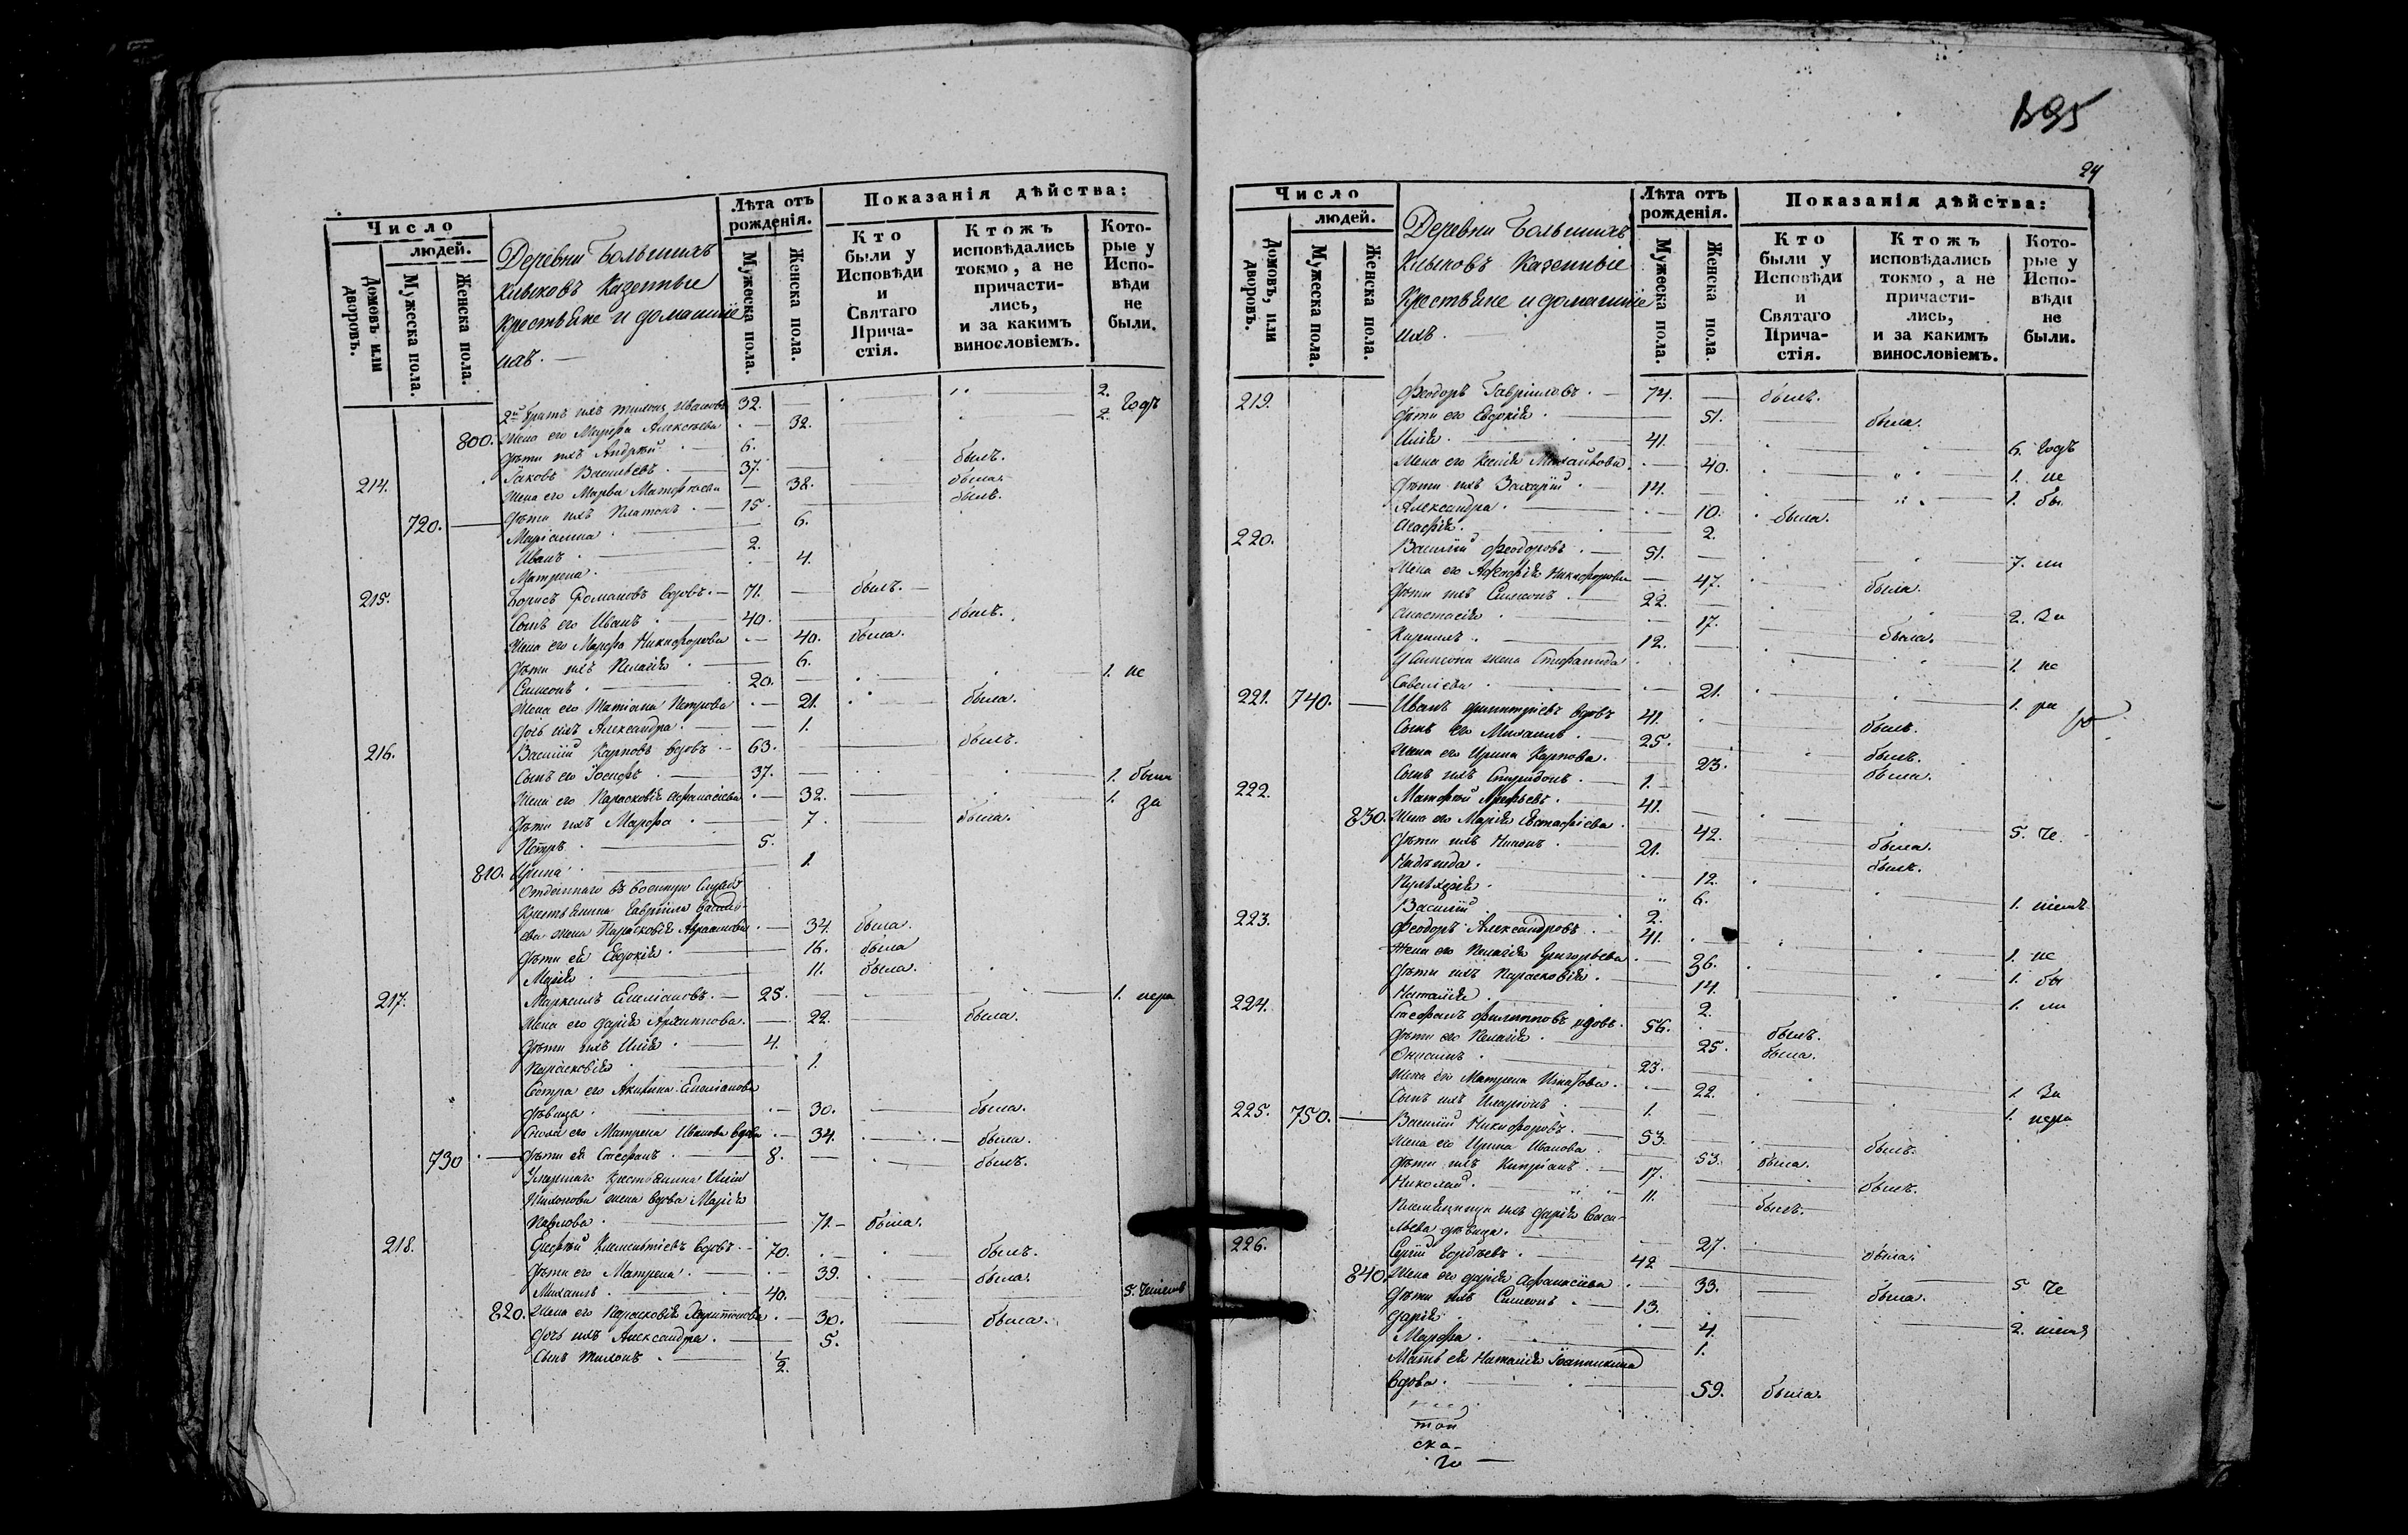 Число
людей.
Домовъ или дворовъ.
Мужеска пола.
Женска пола.
Деревни Большихъ
Клыковъ Казенные
Крестьяне и домашніе
ихъ. —
Лѣта отъ рожденія.
Мужеска пола.
Женска пола.
Показанія дѣйства:
Кто были у Исповѣди и Святаго Причастія.
Ктожъ исповѣдались токмо, а не причастились, и за какимъ винословіемъ.
Которые у Исповѣди не были.
2й братъ ихъ Тихонъ Ивановъ 32. 2. годъ
800. Жена его Марфа Алексѣева 32. 2.
Дѣти ихъ Андрей 6.
214. Іаковъ Васильевъ 37. былъ.
Жена его Марфа Матфѣева 38. была.
720. Дѣти ихъ Платонъ 15. былъ.
Маріанна 6.
Иванъ 2.
Матрена 4.
215. Борисъ Романовъ вдовъ 71. былъ.
Сынъ его Иванъ 40. былъ.
Жена его Марфа Никифорова 40. была.
Дѣти ихъ Пелагія 6.
Симеонъ 20. 1. не
Жена его Татіана Петрова 21. была.
Дочь ихъ Александра 1.
216. Василій Карповъ вдовъ 63. былъ.
Сынъ его Іосифъ 37. 1. былъ
Жена его Парасковія Афанасіева 32. 1. за
Дѣти ихъ Марфа 7. была.
Петръ 5.
810. Ирина 1.
Отданнаго въ военную службу
Крестьянина Гавріила Василь-
ева жена Парасковія Абрамова 34. была.
Дѣти ея Евдокія 16. была
Марія 11. была.
217. Маркеллъ Емеліановъ 25. 1. нера
Жена его Дарія Архиппова 22. была.
Дѣти ихъ Илія 4.
Парасковія 1.
Сестра его Акилина Емеліанова
дѣвица 30. была.
Сноха его Матрена Иванова вдова 34. была.
730 Дѣти ея Стефанъ 8. былъ.
Умершаго крестьянина Иліи
жена вдова Марія
Павлова 71. была.
218. Климентіевъ вдовъ 70. былъ.
Дѣти его Матрена 39. была.
Михаилъ 40. 5.
820. Жена его Парасковія Харитонова 30. была.
Дочь ихъ Александра 5.
Сынъ Тихонъ ½
24
Число
людей.
Домовъ, или дворовъ.
Мужеска пола.
Женска пола.
Деревни Большихъ
Клыковъ Казенные
Крестьяне и домашніе
ихъ.
Лѣта отъ рожденія.
Мужеска пола.
Женска пола.
Показанія дѣйства:
Кто были у Исповѣди и Святаго Причастія.
Ктожъ исповѣдались токмо, а не причастились, и за какимъ винословіемъ.
Которые у Исповѣди не были.
219. Феодоръ Гавріиловъ 74. былъ.
Дѣти его Евдокія 51. была.
Илія 41. 6. годъ
Жена его Ксенія Михайлова 40. 1. не
Дѣти ихъ Захарій 14. 1. бы
Александра 10. была.
Агафія 2.
220. Василій Феодоровъ 51. 7. ли
Жена его Никифорова 47. была.
Дѣти ихъ Симеонъ 22. 2. За
Анастасія 17. была.
Кириллъ 12. 1. не
У Симеона жена Стефанида
Савеліева 21. 1. ра
221. 740. Иванъ Димитріевъ вдовъ 41. былъ.
Сынъ его Михаилъ 25. былъ.
Жена его Ирина Карпова 23. была.
Сынъ ихъ Спиридонъ 1.
222. Матфей Арефьевъ 41. 5. че
830. Жена его Марія Евстафіева 42. была.
Дѣти ихъ Никонъ 21. былъ.
Надежда 12. 1.
Пульхерія 6.
Василій 2.
223. Феодоръ Александровъ 41. 1. не
Жена его Пелагія Григорьева 36. 1. бы
Дѣти ихъ Парасковія 14. 1. ли
Наталія 2.
224. Стефанъ Филипповъ вдовъ 56. былъ.
Дѣти его Пелагія 25. была.
Онисимъ 23. 1. За
Жена его Матрена Игнатова 22. 1. нера
Сынъ ихъ Иларіонъ 1.
225. 750. Василій Никифоровъ 53. былъ.
Жена его Ирина Иванова 53. была.
Дѣти ихъ Кипріанъ 17. былъ.
Николай 11. былъ.
Племянница ихъ Дарія Васи-
льева дѣвица 27. была.
226. Сергій Гордѣевъ 42 5 че
840. Жена его Дарія Афанасіева 33. была.
Дѣти ихъ Симеонъ 13. 2.
Дарія 4.
Марфа 1.
Мать ея Наталія Іоанникина
вдова 59. была.
той
ска-
го —